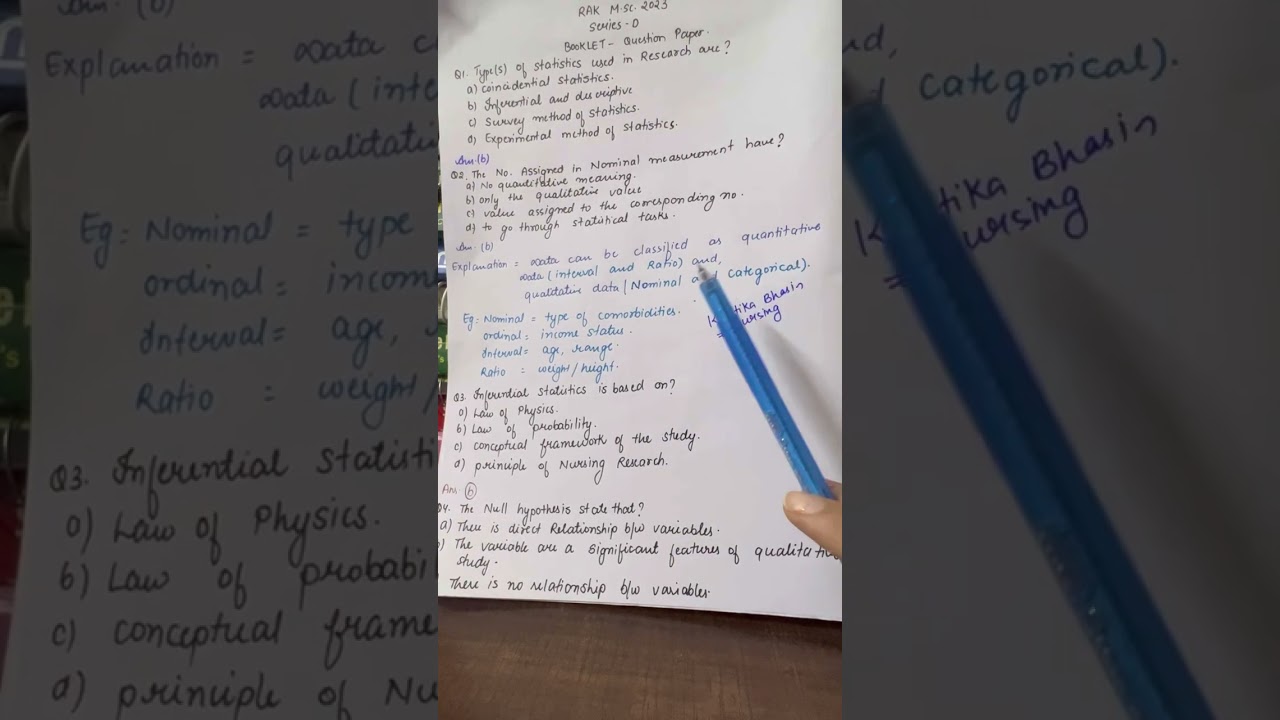 RAK M.Sc. 2023
Series-D
BOOKLET- Question Paper.
Q1. Type(s) of statistics used in Research are?
a) coincidential statistics.
b) Inferential and descriptive
c) Survey method of statistics.
d) Experimental method of statistics.
Ans. (b)
Q2. The No. Assigned in Nominal measurement have?
a) No quantitative meaning.
b) only the qualitative value
c) value assigned to the corresponding no.
d) to go through statistical tasks.
Ans. (b)
Explanation = Data can be classified as quantitative
Data (interval and Ratio) and,
qualitative data (Nominal and categorical).
Eg: Nominal = type of comorbidities.
ordinal = income status.
Interval = age, range.
Ratio = weight/height.
Bhasin
Q3. Inferential statistics is based on?
a) Law of Physics.
b) Law of probability.
c) conceptual framework of the study.
d) principle of Nursing Research.
Ans. (b)
Q4. The Null hypothesis state that?
a) There is direct Relationship b/w variables.
) The variable are a significant features of qualitative
study.
There is no relationship b/w variables.